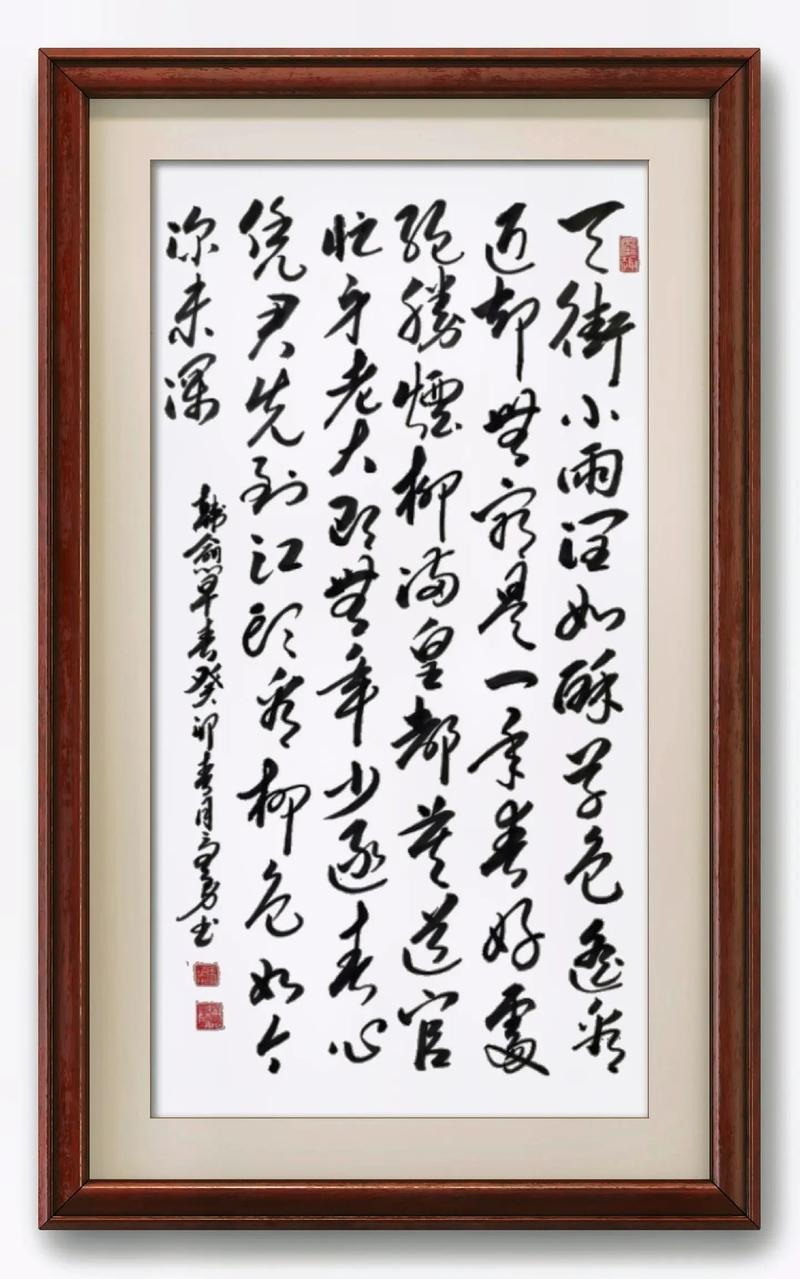 天街小雨潤如酥草色遙看
近却無最是一年春好處
絕勝煙柳滿皇都莫道官
忙身老大即無年少逐春心
凭君先到江頭看柳色如今
深未深
韓愈早春癸卯春月高勇书